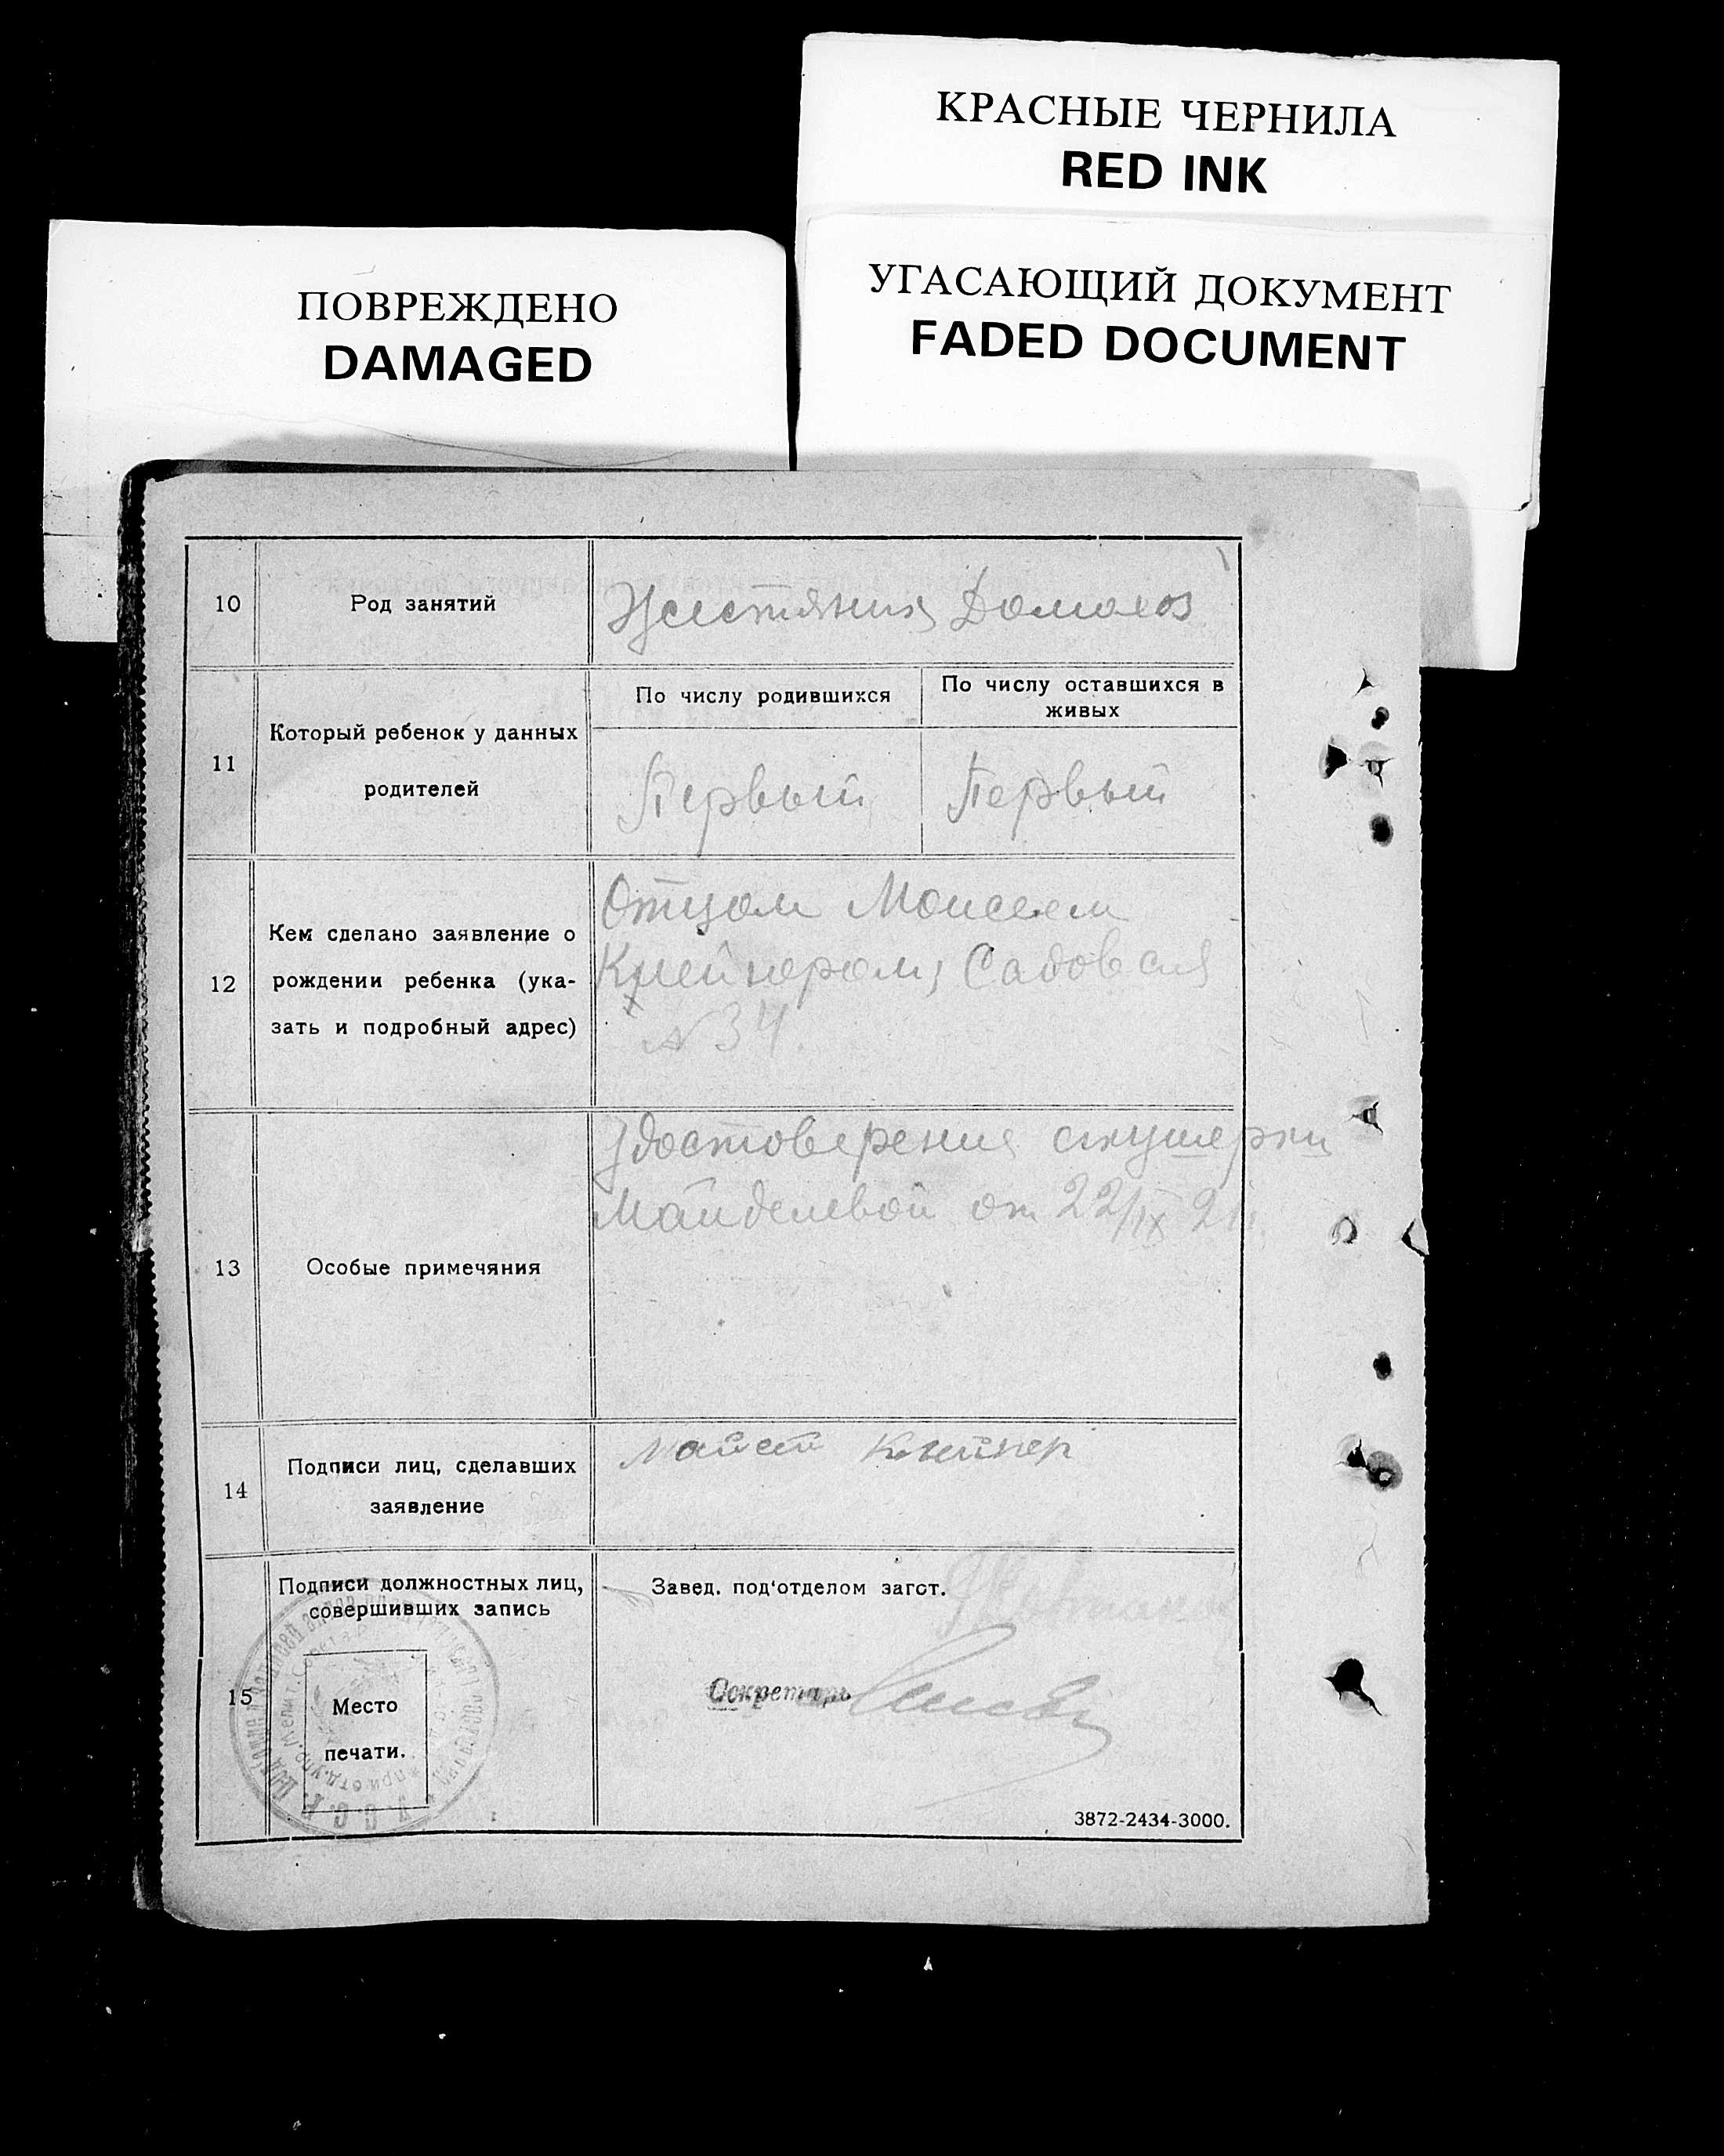 КРАСНЫЕ ЧЕРНИЛА
RED INK
УГАСАЮЩИЙ ДОКУМЕНТ
FADED DOCUMENT
ПОВРЕЖДЕНО
DAMAGED
10
Род занятий
Домохоз
11
Который ребенок у данных
родителей
По числу родившихся
По числу оставшихся в
живых
Первый
Первый
12
Кем сделано заявление о
рождении ребенка (ука-
зать и подробный адрес)
Отцом Моисеем
Клейнером, Садовая
№ 34.
13
Особые примечяния
Удостоверение акушерки
Майделевой от 22/IX 21г.
14
Подписи лиц, сделавших
заявление
Клейнер
15
Подписи должностных лиц,
совершивших запись
Место
печати.
Завед. под‘отделом загст.
Секретарь
3872-2434-3000.